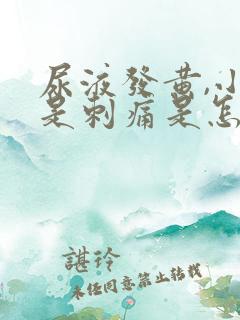 尿液發黃,小
是刺痛是怎
諶玲
未经同意禁止转载